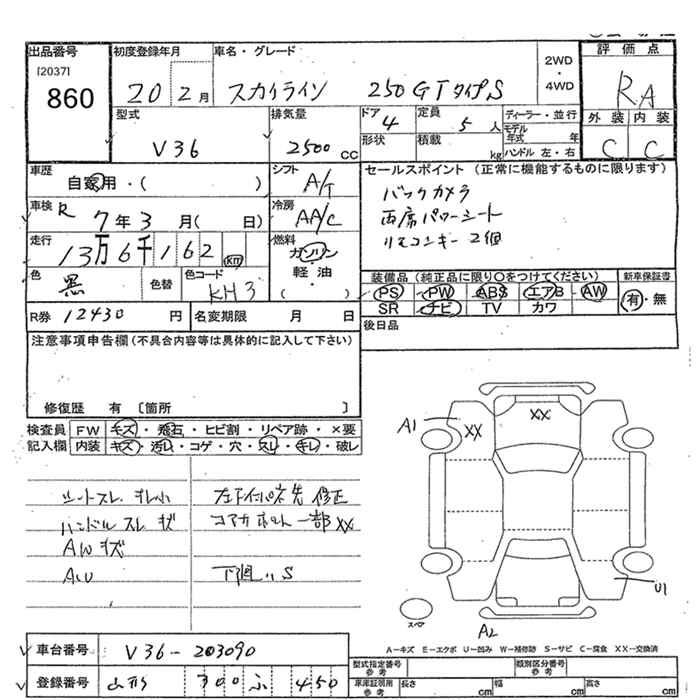 出品番号 初度登録年月 車名・グレード 評価点
[2037]
860 20 2月 スカイライン 250GTタイプS 2WD・4WD RA
型式 排気量 ドア 定員 ディーラー・並行 外装 内装
V36 2500cc 4 5人 モデル年式 年 C C
形状 積載 kg ハンドル 左・右
車歴 シフト セールスポイント(正常に機能するものに限ります)
自家用・( ) A/T バックカメラ
車検 R 7年3月( 日) 冷房 AA/C 両席パワーシート
走行 13万6千162km 燃料 ガソリン 軽油・( ) リモコンキー2個
色 黒 色替 色コード KH3 装備品(純正品に限り○をつけてください) 新車保証書
PS PW ABS エアB AW 有・無
SR ナビ TV カワ
R券 12430円 名変期限 月 日 後日品
注意事項申告欄(不具合内容等は具体的に記入して下さい)
修復歴 有 [箇所 ]
検査員 FW キズ・飛石・ヒビ割・リペア跡・×要
記入欄 内装 キズ・汚レ・コゲ・穴・スレ・キレ・破レ
A1 XX XX
シートスレ キレ小 左フロントインパネ先 修正
ハンドルスレ キズ コアサポート一部XX
AWキズ
下廻りS
U1
スペア A2
A-キズ E-エクボ U-凹み W-補修跡 S-サビ C-腐食 XX-交換済
車台番号 V36-203090
型式指定番号 参考 類別区分番号 参考
登録番号 山形 300 ふ 450
車庫証明用 参考 長さ cm 幅 cm 高さ cm